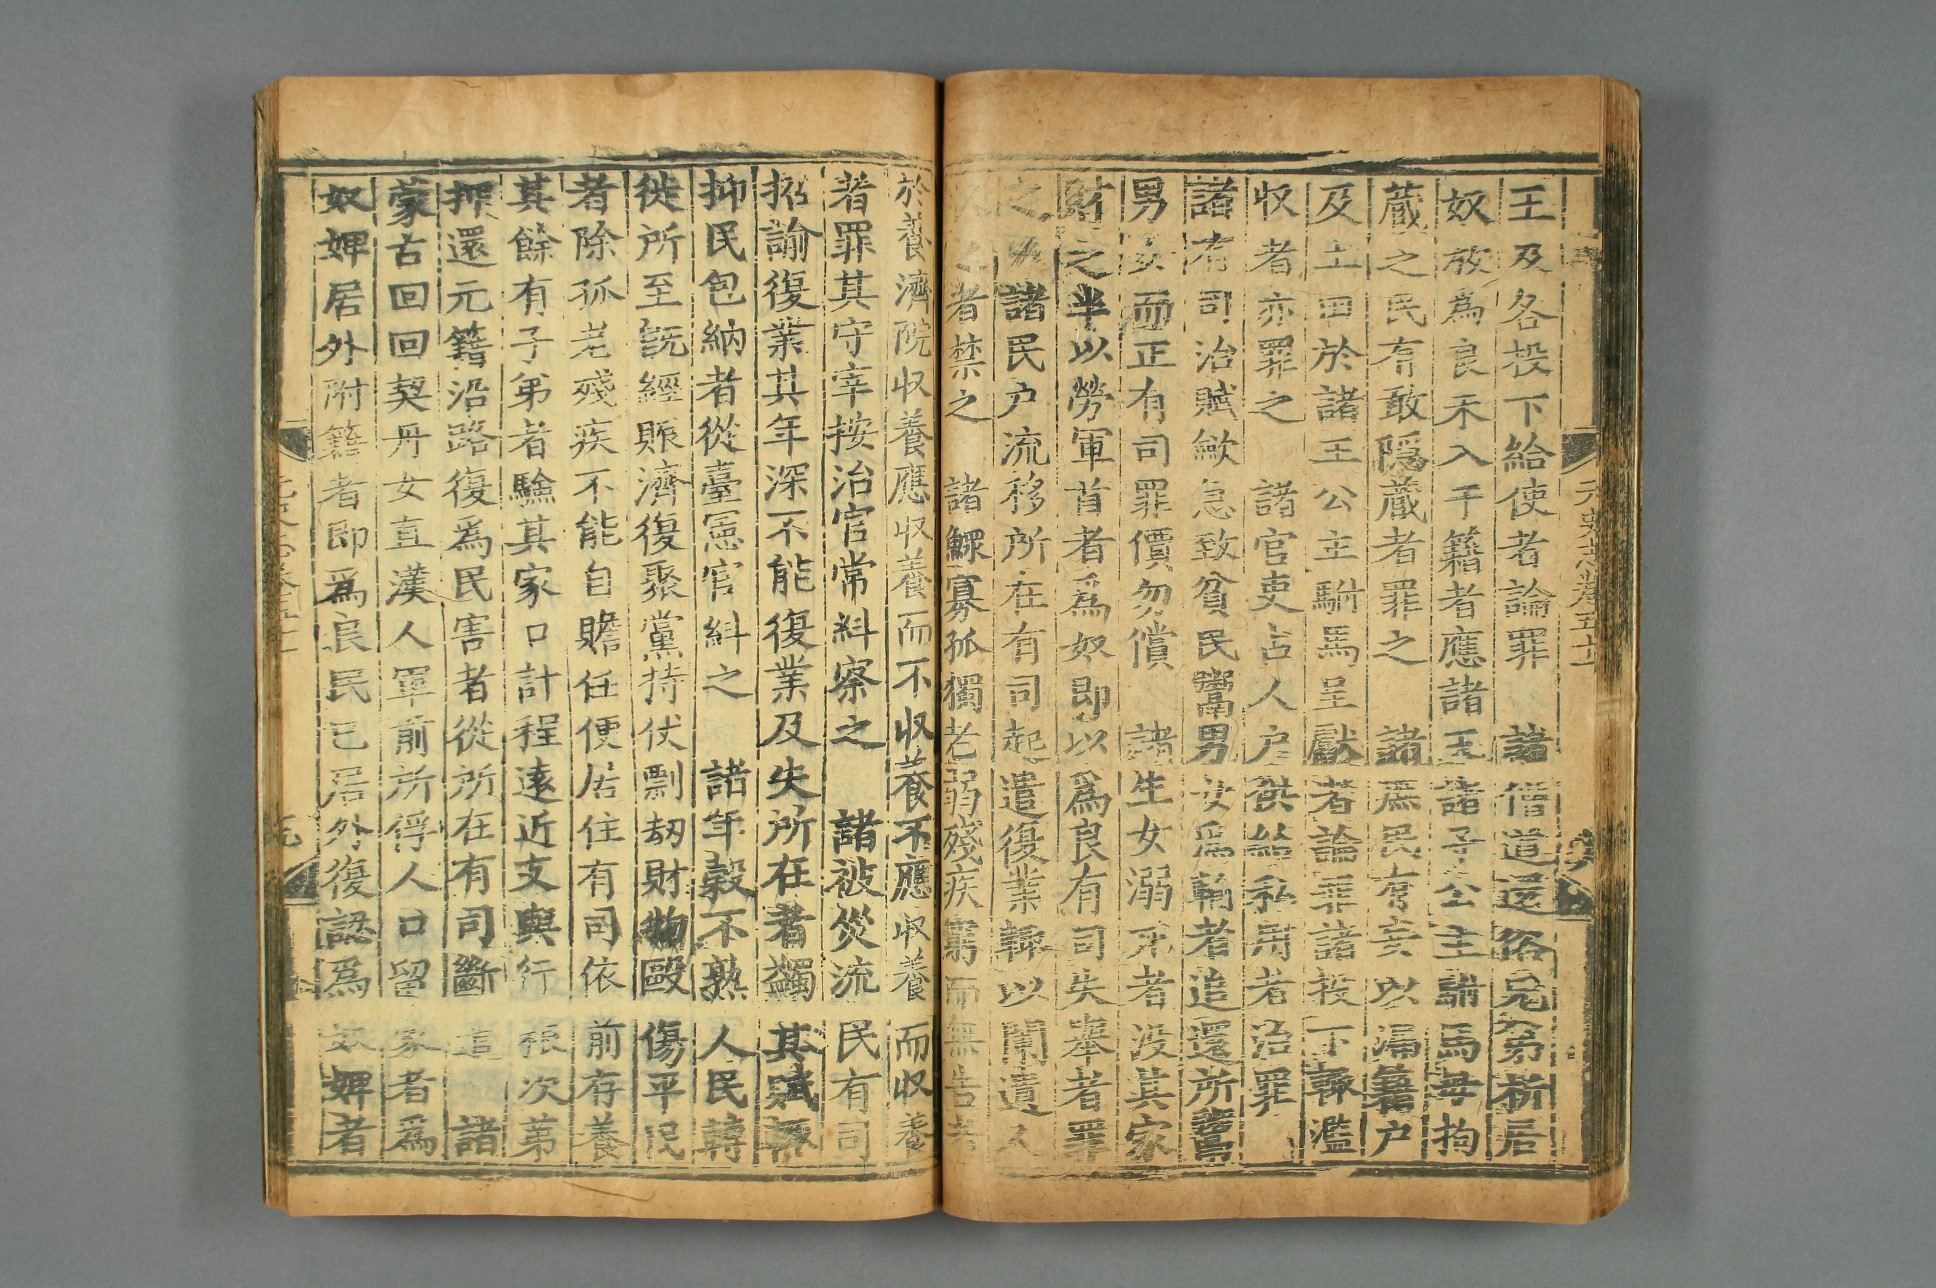 王及各投下給使者論罪　諸僧道還俗兄弟析居
奴放為良未入于籍者應諸王諸子公主駙馬毋拘
藏之民有敢隱藏者罪之　諸庶民有妄以漏籍户
及土田於諸王公主駙馬呈獻者論罪諸投下輒濫
收者亦罪之　諸官吏占人户供給私用者治罪
諸有司治賦歛急致貧民鬻男女為輸者追還所鬻
男女而正有司罪價勿償　諸生女溺死者没其家
財之半以勞軍首者為奴即以為良有司失舉者罪
之　諸民户流移所在有司起遣復業輒以闌遺人
者禁之　諸鰥寡孤獨老弱殘疾窮而無告者
於養濟院収養應収養而不収養不應収養而収養
者罪其守宰按治官常糾察之　諸被災流民有司
招諭復業其年深不能復業及失所在者蠲其賦輒
抑民包納者從臺憲官糾之　諸年穀不熟人民轉
徙所至既經賑濟復聚黨持仗剽刼財物毆傷平民
者除孤老殘疾不能自贍任便居住有司依前存養
其餘有子弟者驗其家口計程遠近支與行粮次第
押還元籍沿路復為民害者從所在有司斷遣　諸
蒙古回回契丹女直漢人軍前所俘人口留家者為
奴婢居外附籍者即為良民已居外復認為奴婢者
元史志卷五十一